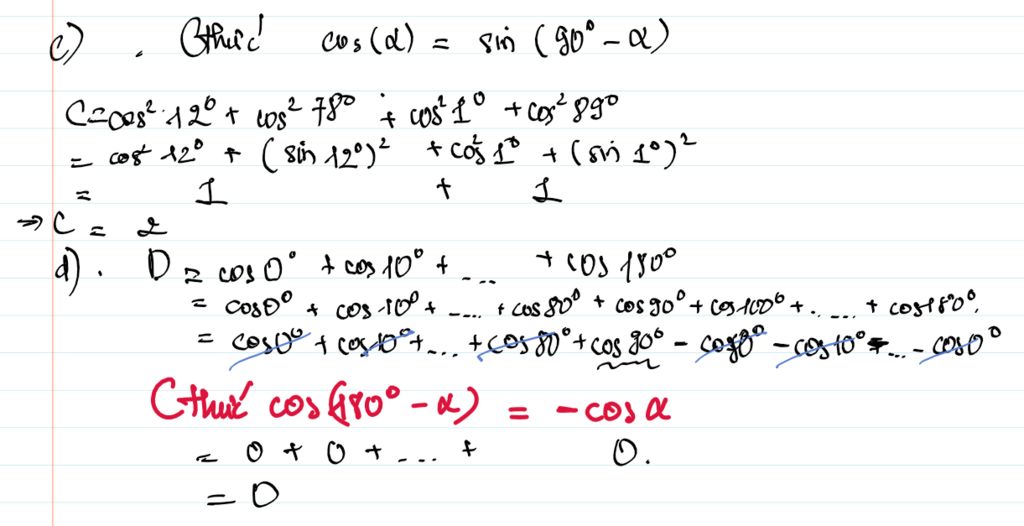 c) . Cthức cos(α) = sin (90° - α)
C = cos² 12° + cos² 78° + cos² 1° + cos² 89°
= cos² 12° + (sin 12°)² + cos² 1° + (sin 1°)²
= 1 + 1
⇒ C = 2
d) . D = cos 0° + cos 10° + .... + cos 180°
= cos 0° + cos 10° + .... + cos 80° + cos 90° + cos 100° + ..... + cos 180°.
= cos 0° + cos 10° + ... + cos 80° + cos 90° - cos 80° - cos 10° - ... - cos 0°
Cthức cos(180° - α) = - cos α
= 0 + 0 + .... + 0.
= 0